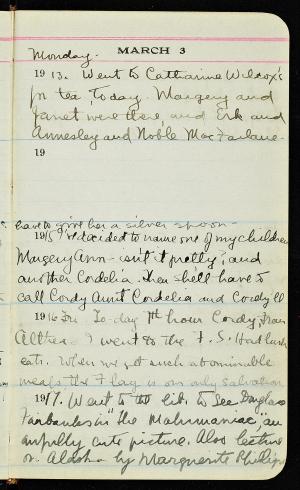 Monday.
MARCH 3
1913. Went to Catharine Wilcox's
for tea, today. Margery and
Janet were there, and Erk and
Annesley and Noble MacFarlane.
19
have to give her a silver spoon -
1915 I decided to name one of my children
Margery Ann - isn't it pretty; and
another Cordelia. Then she'll have to
call Cordy Aunt Cordelia and Cordy'll
1916 Fri. To-day 7th hour Cordy, Fran
Althea & I went to the F. S.
eats. When we get such abominable
meals the Flag is our only salvation
1917. Went to the lib. to see Douglas
Fairbanks in "The Matrimaniac", an
awfully cute picture. Also lecture
on Alaska by Marguerite